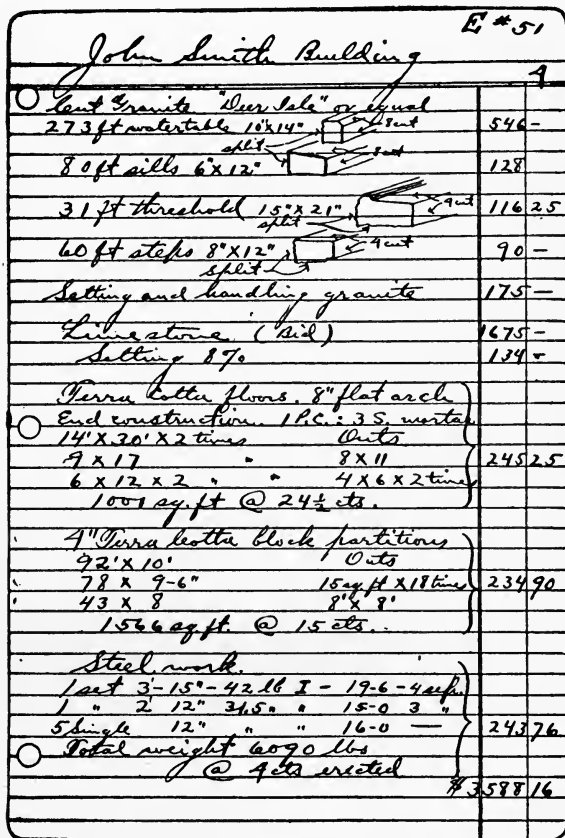 E #51
John Smith Building
4
Cut Granite "Deer Isle" or equal
273 ft watertable 10"x14" 8 cut 546 -
split
80 ft sills 6"x12" 8 cut 128
31 ft threshold 15"x21" 4 cut 116 25
split
60 ft steps 8"x12" 4 cut 90 -
split
Setting and handling granite 175 -
Limestone (Bid) 1675 -
Setting 8% 134 -
Terra Cotta floors. 8" flat arch
End construction. 1 P.C.: 3 S. mortar
14' x 30' x 2 times Outs
9 x 17 " 8 x 11 245 25
6 x 12 x 2 " " 4 x 6 x 2 times
1001 sq. ft @ 24½ cts.
4" Terra Cotta block partitions
92' x 10' Outs
78 x 9-6" 15 sq ft x 18 times 234 90
43 x 8 8' x 8'
1566 sq. ft. @ 15 cts..
Steel work.
1 set 3-15"-42 lb I - 19-6 - 4 sep.
1 " 2 12" 31.5 " " 15-0 3 "
5 Single 12" " " 16-0 — 243 76
Total weight 6090 lbs
@ 4 cts erected
$3588 16